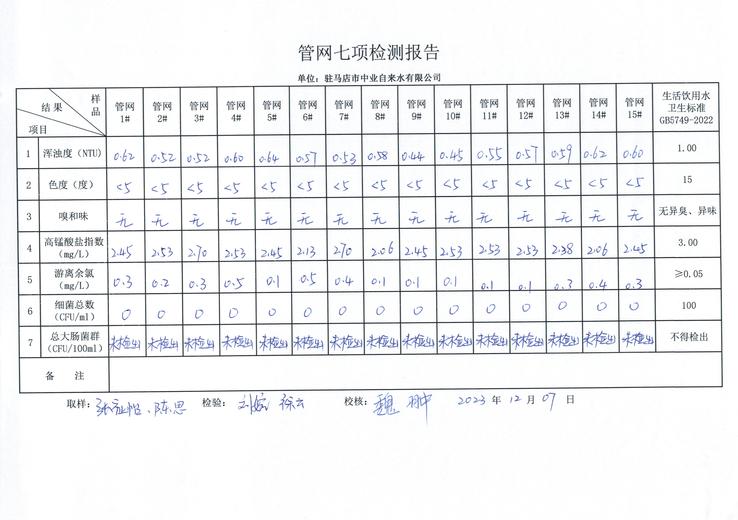 管网七项检测报告
单位：驻马店市中业自来水有限公司
结果 样品 项目 管网1# 管网2# 管网3# 管网4# 管网5# 管网6# 管网7# 管网8# 管网9# 管网10# 管网11# 管网12# 管网13# 管网14# 管网15# 生活饮用水卫生标准GB5749-2022
1 浑浊度（NTU） 0.62 0.52 0.52 0.60 0.64 0.57 0.53 0.58 0.44 0.45 0.55 0.57 0.59 0.62 0.60 1.00
2 色度（度） <5 <5 <5 <5 <5 <5 <5 <5 <5 <5 <5 <5 <5 <5 <5 15
3 嗅和味 无 无 无 无 无 无 无 无 无 无 无 无 无 无 无 无异臭、异味
4 高锰酸盐指数（mg/L） 2.45 2.53 2.70 2.53 2.45 2.13 2.70 2.06 2.45 2.53 2.53 2.53 2.38 2.06 2.45 3.00
5 游离余氯（mg/L） 0.3 0.2 0.3 0.5 0.1 0.5 0.4 0.1 0.1 0.1 0.1 0.1 0.3 0.4 0.3 ≥0.05
6 细菌总数（CFU/ml） 0 0 0 0 0 0 0 0 0 0 0 0 0 0 0 100
7 总大肠菌群（CFU/100ml） 未检出 未检出 未检出 未检出 未检出 未检出 未检出 未检出 未检出 未检出 未检出 未检出 未检出 未检出 未检出 不得检出
备注
取样： 陈思 检验： 校核： 魏 2023年12月07日